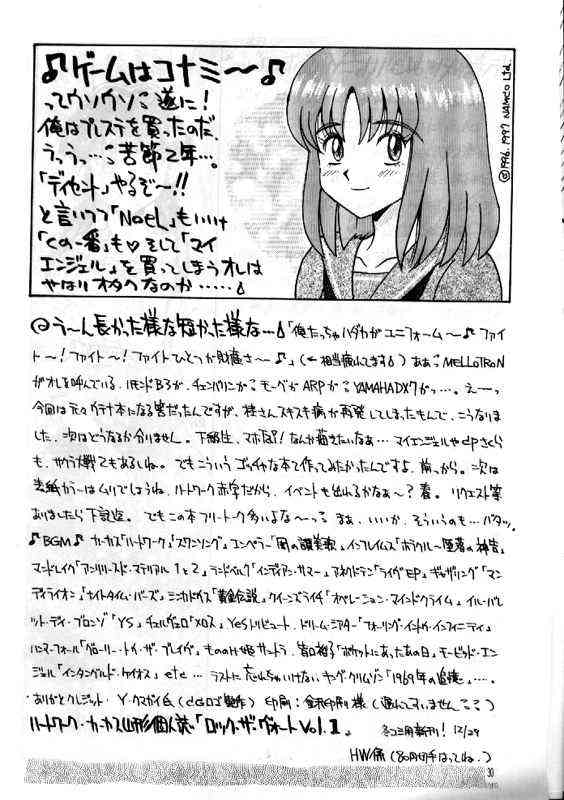 ♪ゲームはコナミ〜♪
ってウソウソ 遂に!
俺はプレステを買ったのだ.
うっうっ…苦節2年….
「ディセント」やるぞ〜!!
と言いつつ「NoeL」もいいけ
「くの一番」も♡そして「マイ
エンジェル」を買ってしまうオレは
やはりオタクなのか……
©1996, 1997 NAMCO Ltd.
@う〜ん長かった様な短かった様な…「俺たっちゃハダカがユニフォーム〜♪ファイ
ト〜!ファイト〜!ファイトひとつが財産さ〜♪」(←相当疲れてます)ああ MELLOTRON
がオレを呼んでいる. ハモンドB3が, チェンバリンが モーグが ARPが YAMAHA DX7がっ…. え〜っ
今回は元々ゲテナ本になる筈だったんですが, 桂さんスキスキ病が再発してしまったもんで, こうなりま
した. 次はどうなるか分りません. 下級生, マホ なんか描きたいなぁ… マイエンジェルや さくら
も, サクラ大戦でもあるしね. でもこういうゴッチャな本て作ってみたかったんですよ, 前っから. 次は
表紙カラーはムリでしょうね, ハートワーク赤字だから. イベントも出れるかなぁ〜? 春. リクエスト等
ありましたら下記迄. でもこの本フリートーク多いよな〜っ まぁ, いいか, そういうのも… バタッ.
♪BGM♪ カーカス「ハートワーク」「スワンソング」エンペラー「闇の讃美歌」インフレイムス「
マンドレイク「アンリリースド・マテリアル1と2」ランドベルク「インディアン・サマー」アネクドテン「ライヴEP」ギャザリング「マン
ディライオン」「ナイトタイム・バーズ」ミンカドゥス「黄金伝説」クイーンズライチ「オペレーション・マインドクライム」イル・バレ
ット・ディ・ブロンゾ「YS」チェルヴェロ「メロス」Yesトリビュート. ドリーム・シアター「フォーリング・イントゥ・インフィニティ」
「グローリー・トゥ・ザ・ブレイヴ」もののけ姫サントラ. 岩口裕子「ポケットにあったあの日」モービッド・エン
ジェル「インタングルド・ケイオス」etc… ラストに忘れちゃいけないキング・クリムゾン「1969年の追憶」….
ありがとクレジット. Y・クマガイ氏( ロゴ製作) 印刷: 印刷様(遅れてすいません)
ハートワーク・カーカス山形個人誌「ロック・ザ・ヴォートVol.1」 冬コミ用新刊! 12/29
HW係(80円切手はってね.)
30